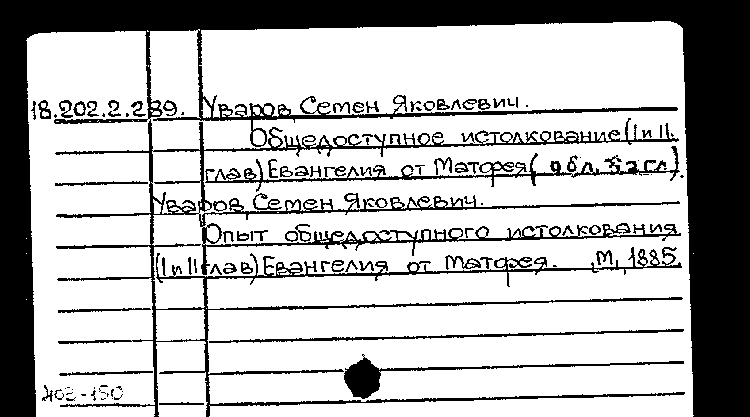 18.202.2.289. Уваров, Семен Яковлевич.
Общедоступное истолкование (I и II.
глав) Евангелия от Матфея( обл. загл.)
Уваров, Семен Яковлевич.
Опыт общедоступного истолкования
(I и II глав) Евангелия от Матфея. М, 1885.
403-150